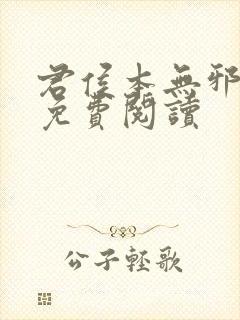 君侯本無邪
免費閱讀
公子輕歌